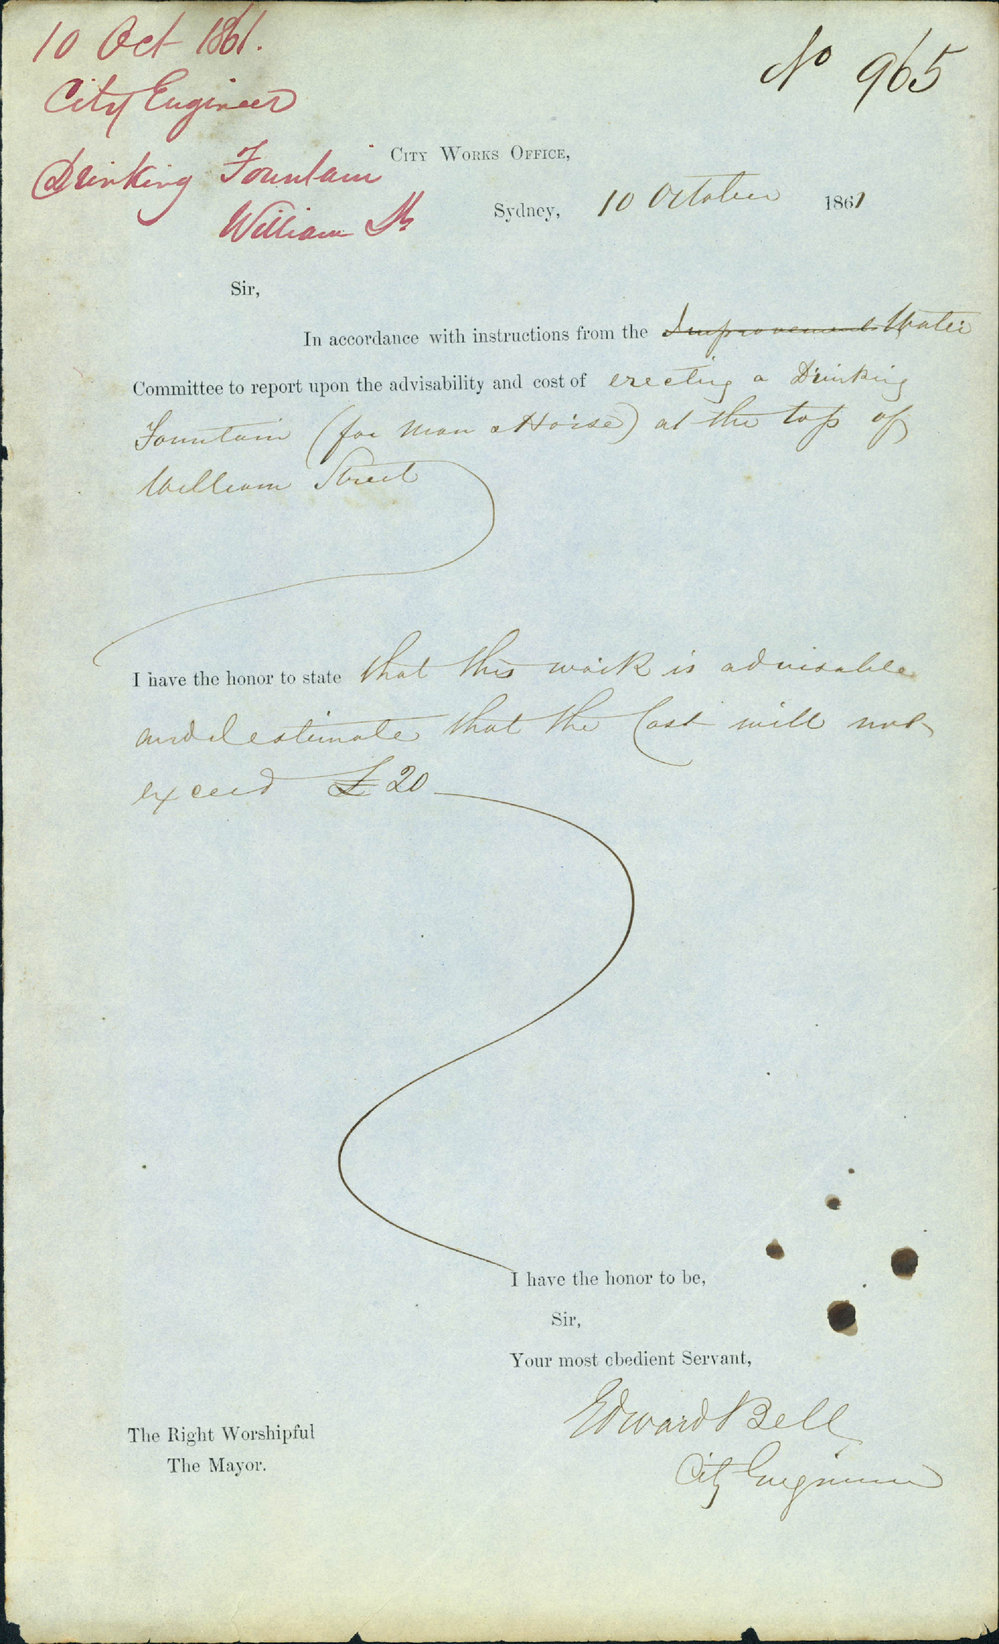 10 Oct 1861.
City Engineer
Drinking Fountain
William St
No 965
City Works Office,
Sydney, 10 October 1861
Sir,
In accordance with instructions from the Improvement Water
Committee to report upon the advisability and cost of erecting a Drinking
Fountain (for Man & Horse) at the top of
William Street
I have the honor to state that this work is advisable
and I estimate that the Cost will not
exceed £20
I have the honor to be,
Sir,
Your most obedient Servant,
Edward Bell
City Engineer
The Right Worshipful
The Mayor.